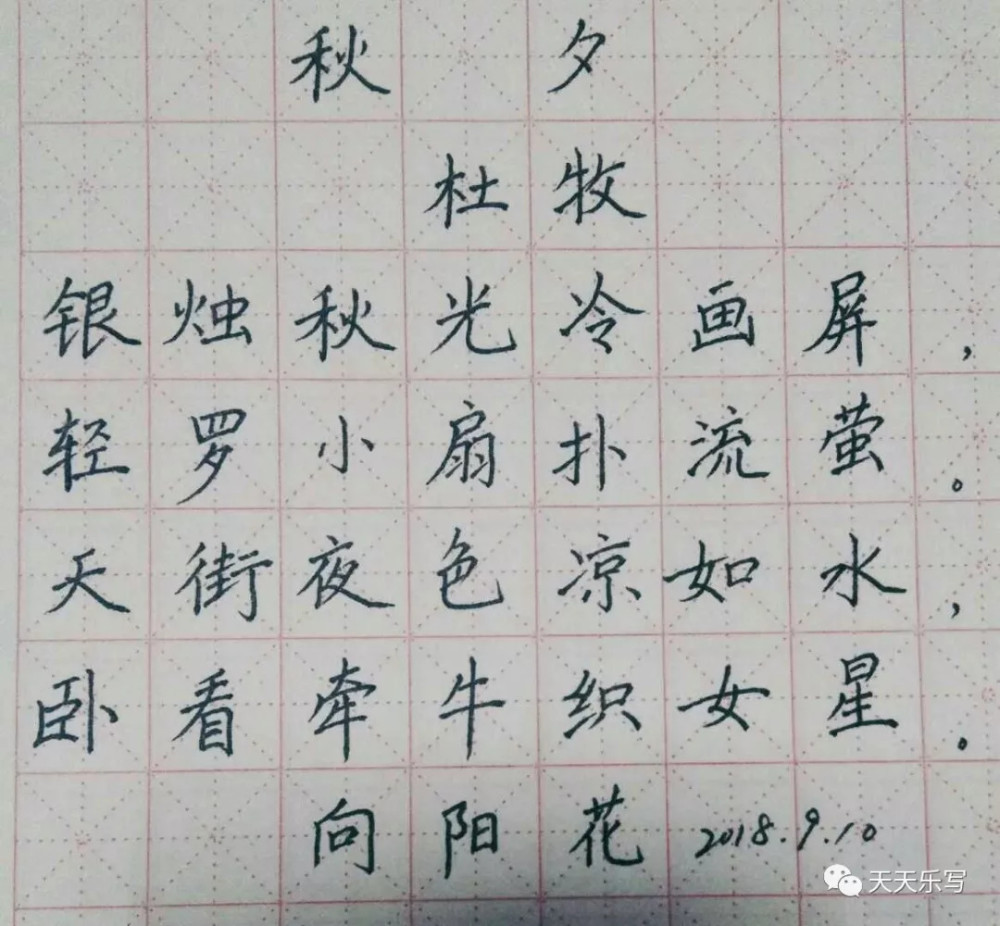 秋 夕
杜牧
银烛秋光冷画屏，
轻罗小扇扑流萤。
天街夜色凉如水，
卧看牵牛织女星。
向阳花 2018.9.10
天天乐写